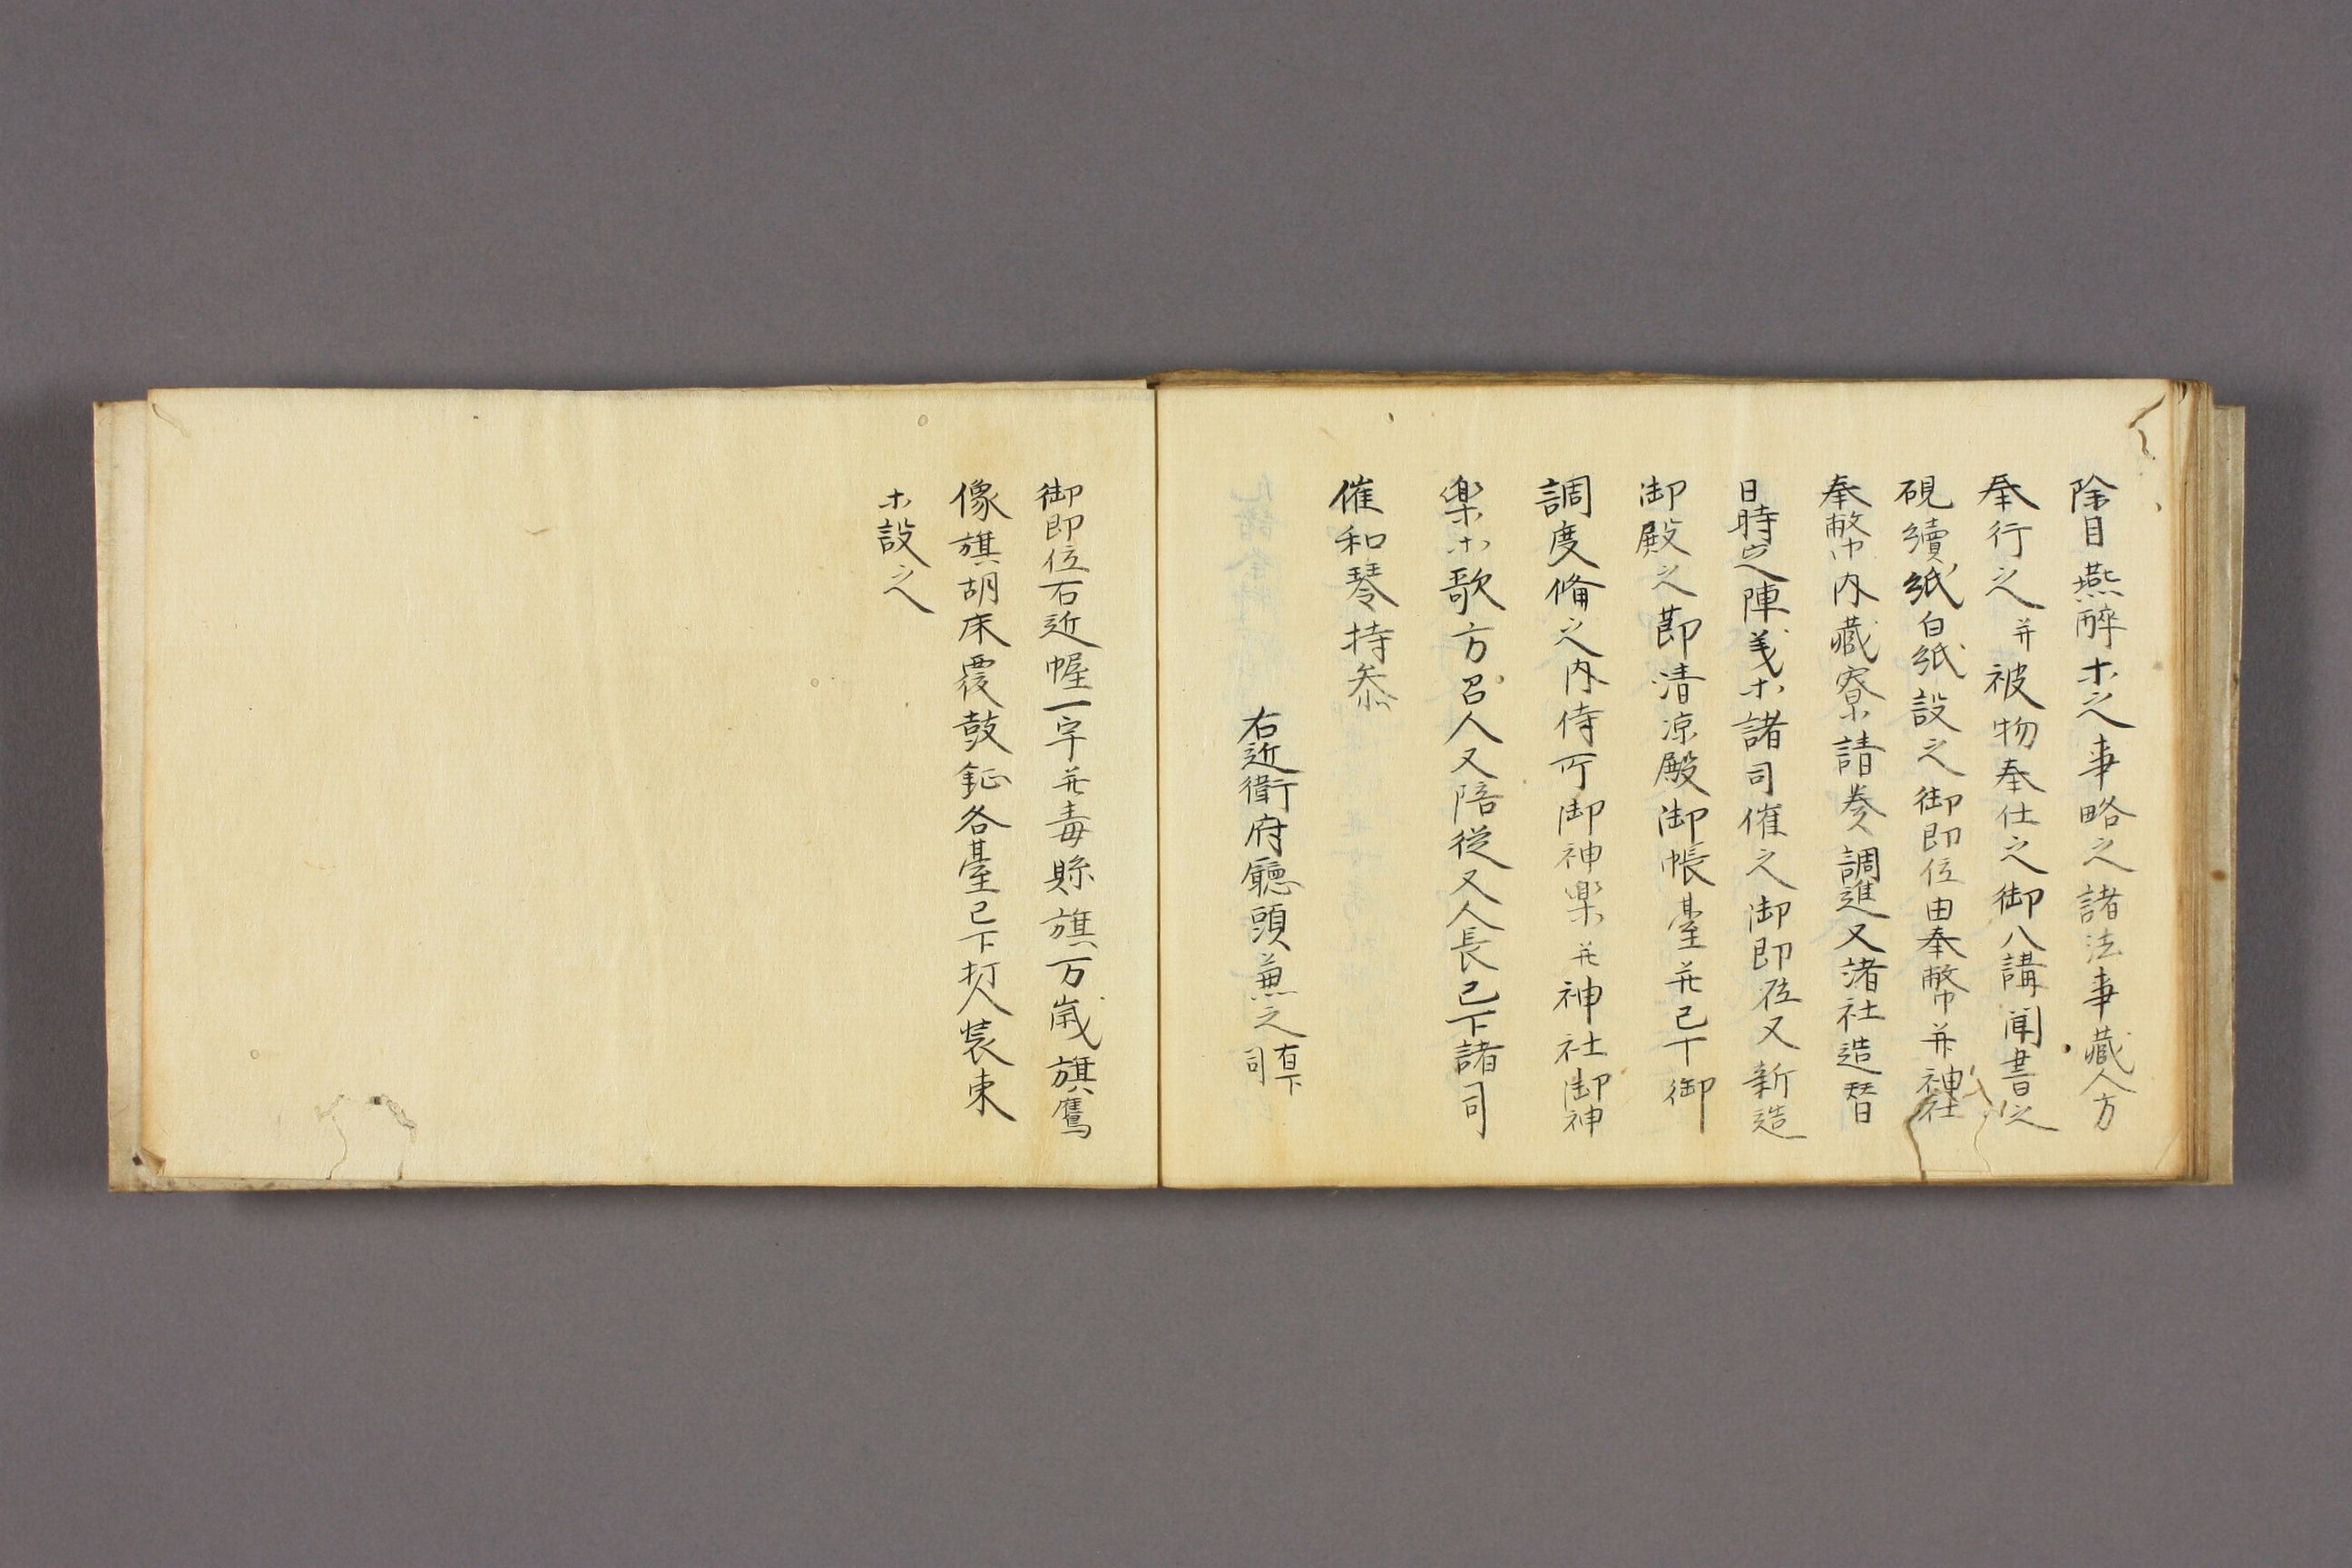 除目燕醉ホ之事略之諸法事藏人方
奉行之并被物奉仕之御八講聞書之
硯續紙白紙設之御即位由奉幣并神社
奉幣内藏寮請奏調進又諸社造替
日時定陣義ホ諸司催之御即位又新造
御殿之莭清凉殿御帳臺并已下御
調度俻之内侍所御神楽并神社御神
楽ホ歌方召人又陪従又人長已下諸司
催和琴持参
右近衛府廳頭兼之有下司
御即位右近幄一宇并毒䌛旗万嵗旗鷹
像旗胡床覆鼓鉦各臺已下打人装束
ホ設之